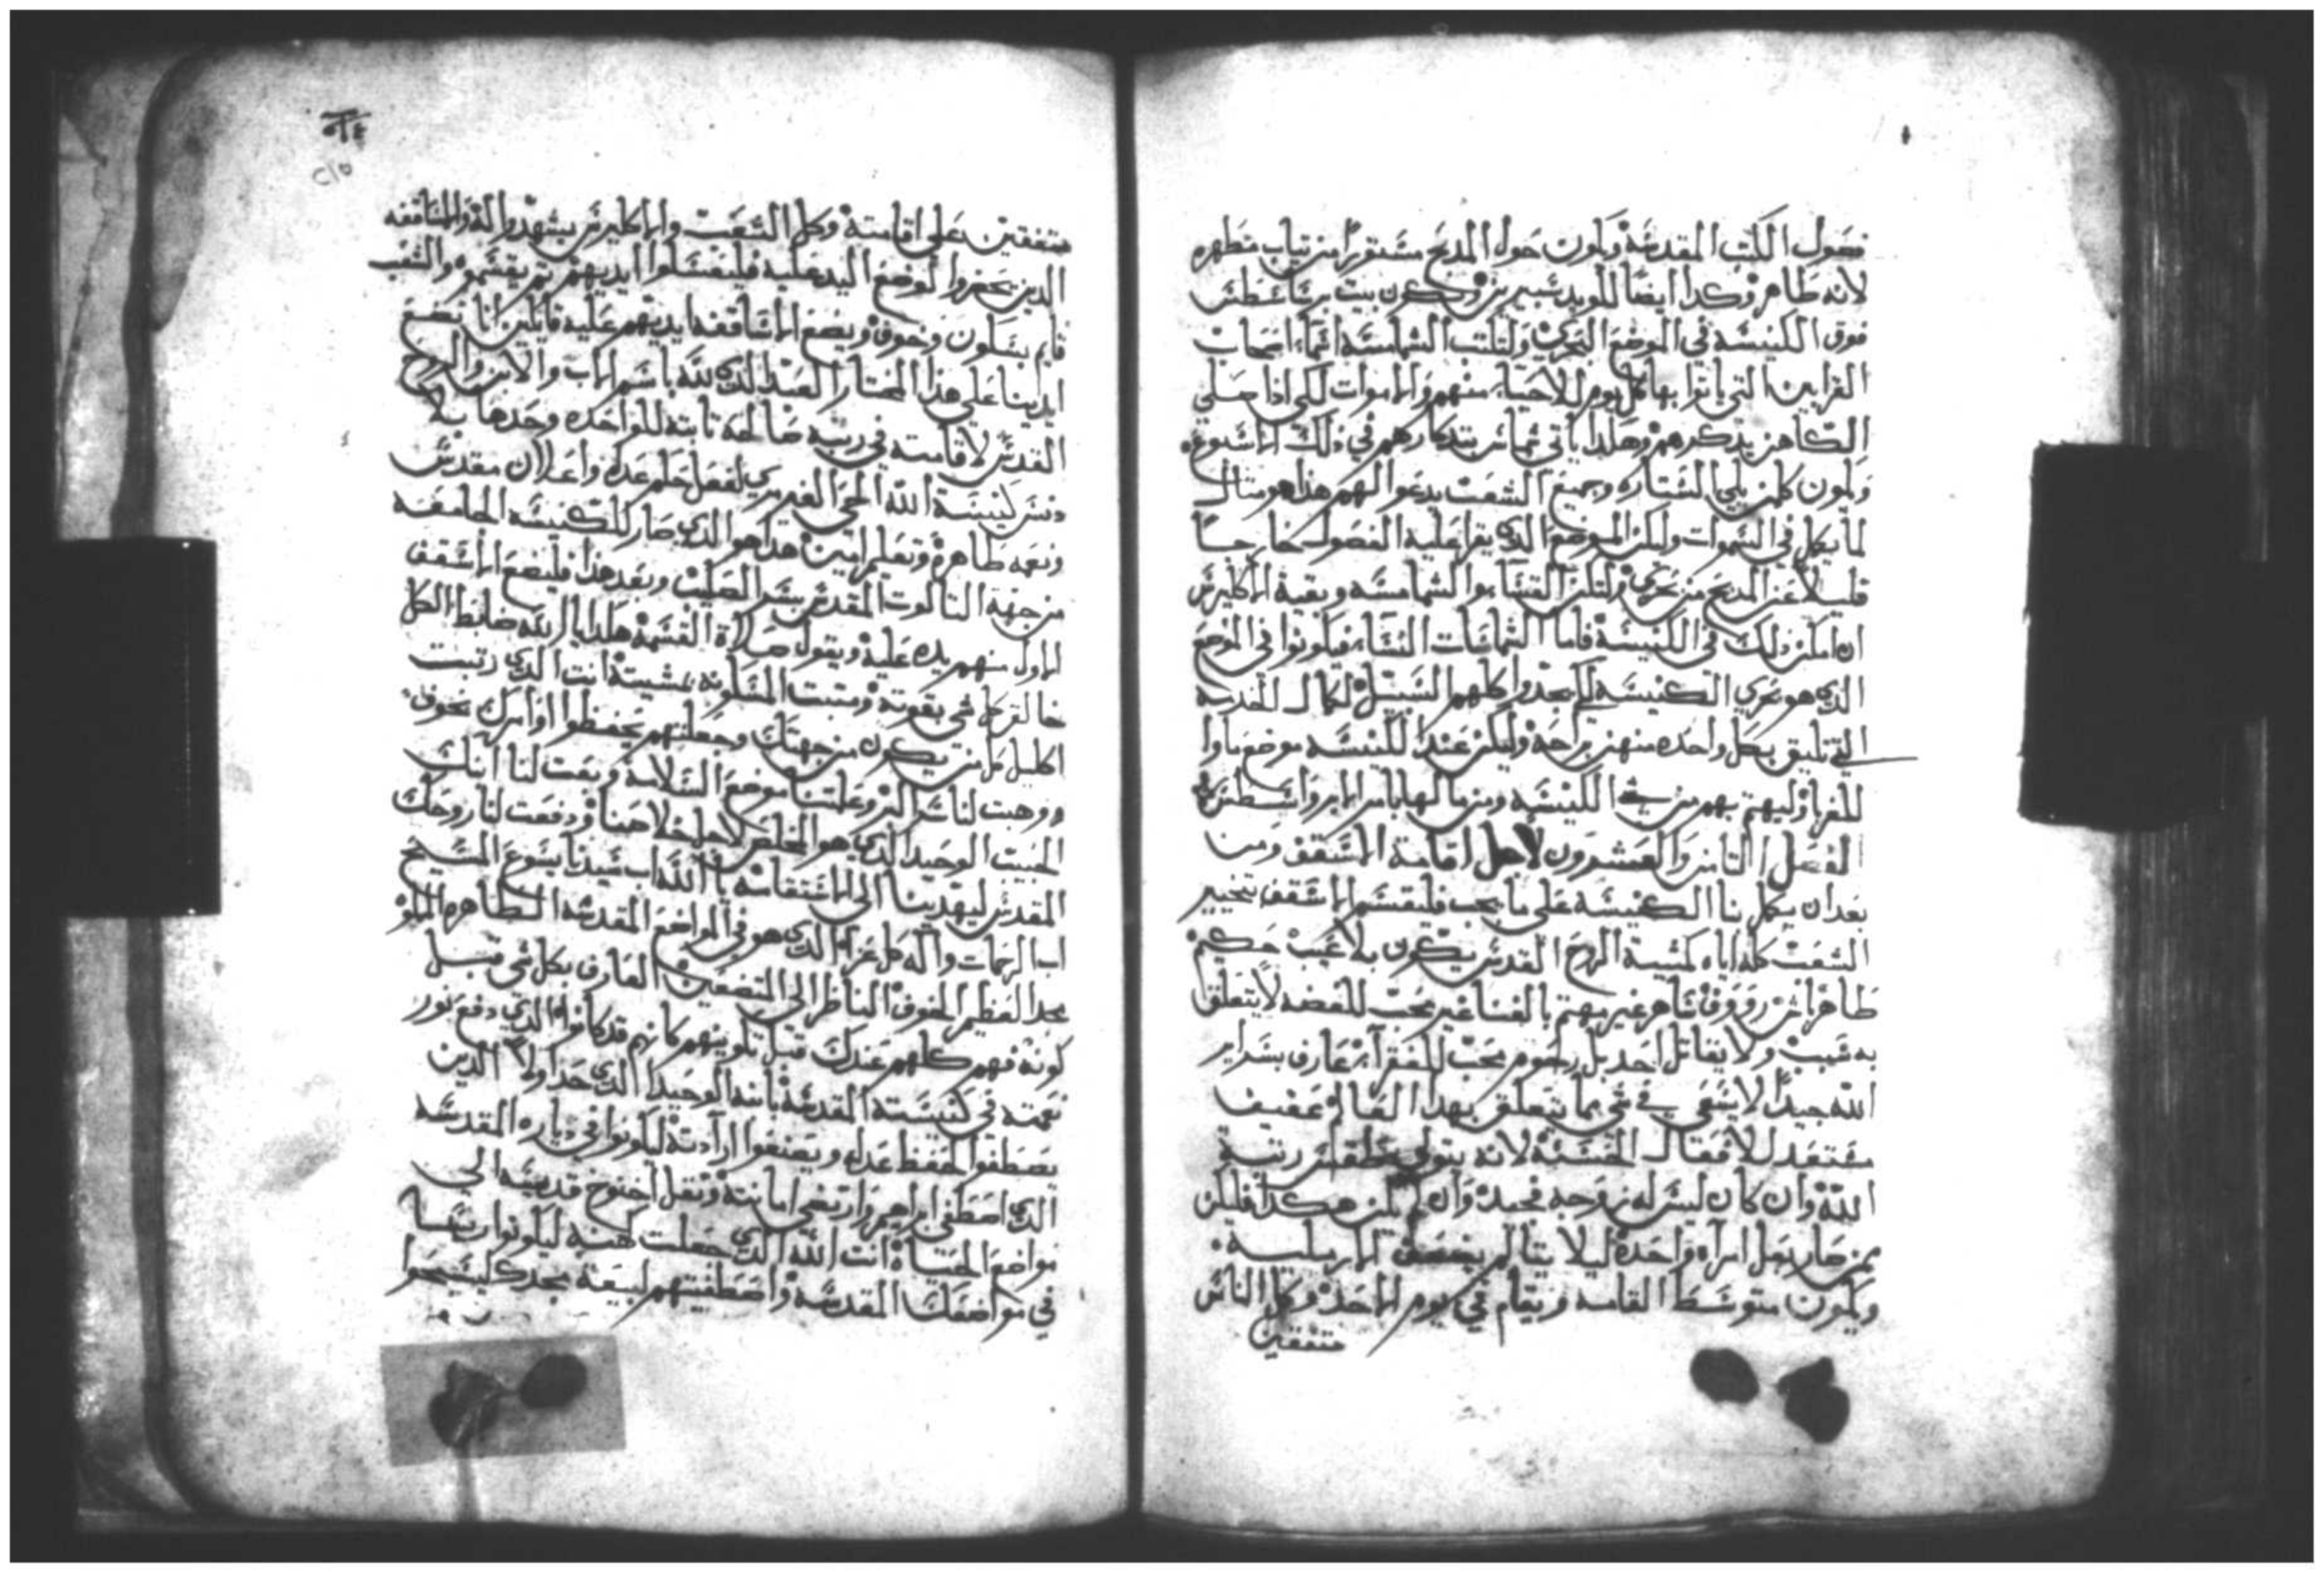 فصول الكتب المقدسة ويكون حول المدبح مستورا من تياب مطهره
لانه طاهر وكدا ايضا للوبد سبير بن ويكون بيت برشاسطس
فوق الكنيسه في الموضع البحري ولتكتب الشمامسه اسماء اصحاب
القرابين التي ياتوا بها كل يوم للاحياء منهم والاموات لكي اذا صلي
الكاهن يدكرهم وهكدا ياتي شماس بتدكارهم في ذلك الاسبوع
ويكون كلمن يلي الستاره وجميع الشعب يدعوا لهم هذا هو متال
لما يكمل في السموات وليكن الموضع الدي يقرا عليه الفصول خارجا
قليلا عن المدبح من بحري ولتكن القساء والشمامسه وبقية الاكليرس
ان امكن ذلك في الكنيسة فاما الشماسات النساء فيكونوا في الموضع
الدي هو بحري الكنيسه لكي يجدوا كلهم السبيل لكمال الخدمه
التي تليق بكل واحده منهن براحة وليكن عند الكنيسه موضع ماوا
للغربا وليهتم بهم من شي الكنيسه ومن مالها بامر الابروابسطس
الفصل التامن والعشرون لاجل اقامة الاسقف ومن
بعد ان يكمل بنا الكنيسه على ما يجب فليقسم الاسقف بتخيير
الشعب كله اياه كمشيية الروح القدس يكون بلا عيب حكيم
طاهر اش رووف ساهر غير مهتم بالفنا غير محب للفضه لا يتعلق
به سبب ولا يقاتل احد بل رحوم محب للفقرآء عارف بسراير
الله جيدا لا يسعى في شي مما يتعلق بهدا العالم عفيف
مستعد للافعال الحسنة لانه يتولي طقس رتبة
الله وان كان ليس له زوجه فجيد وان لم يكن هكدا فليكن
ممن صار بعل امرآه واحدة ليلا يتالم بضعف الارمليه
ويكون متوسط القامه ويقام في يوم الاحد وكل الناس
متفقين
٢١٥
متفقين على اقامته وكل الشعب والاكليرس يشهدوا له والاساقفه
الدين يحضروا لوضع اليد عليه فليغسلوا ايديهم تم يقسموه والشعب
قايم بسكون وخوف ويضع الاساقفه ايديهم عليه قايلين انا نضع
ايدينا على هذا المختار العبد الدي لله باسم الاب والابن والروح
القدس لاقامته في رتبه صالحه تابته للواحده وحدها بلا
دنس كنيسة الله الحي الغير مري لفعل حكم عدل واعلان مقدس
ونعمه طاهرة وتعليم امين هدا هو الدي صار للكنيسه الجامعه
من جهة التالوت المقدس بسر الصليب وبعد هذا فليضع الاسقف
الاول منهم يده عليه ويقول صلاة القسمة هكدا يا رب الله ضابط الكل
خالق كل شي بقوته ومتبت المسكونه بمشيته انت الدي رتبت
اكليل كل من يكون من جهتك وجعلتهم يحفظوا اوامرك بخوف
ووهبت لنا سر البر وعلمتنا موضع السلامه وبعت لنا ابنك
الحبيب الوحيد الدي هو المخلص لاجل خلاصنا ودفعت لنا روحك
المقدس ليهدينا الى الاستقامه يا الله اب سيدنا يسوع المسيح
اب الرحمات واله كل عزا الدي هو في المواضع المقدسه الطاهره المملو
مجدا العظيم المخوف الناظر الى المتضعين العارف بكل شي قبل
كونه فهم كلهم عندك قبل تكوينهم كانهم قد كانوا الدي دفع نور
نعمته في كنيسته المقدسة بابنه الوحيد الدي حدد اولا الدين
يصطفوا لحفظ عدله ويصنعوا ارادته ليكونوا في دياره المقدسه
الدي اصطفى ابراهيم وارتضى امانته ونقل اخنوخ قديسه الى
مواضع الحياة انت الله الدي جعلت كهنه ليكونوا رييسا
في مواضعك المقدسة واصطفيتهم لبيعة مجدك ليسبحوا